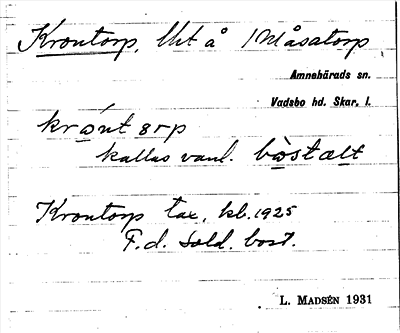 Krontorp, Uht å 1 Måsatorp
Amnehärads sn.
Vadsbo hd. Skar. l.
kallas vanl.
Krontorp tax. kb. 1925
F. d. sold. bost.
L. MADSÉN 1931